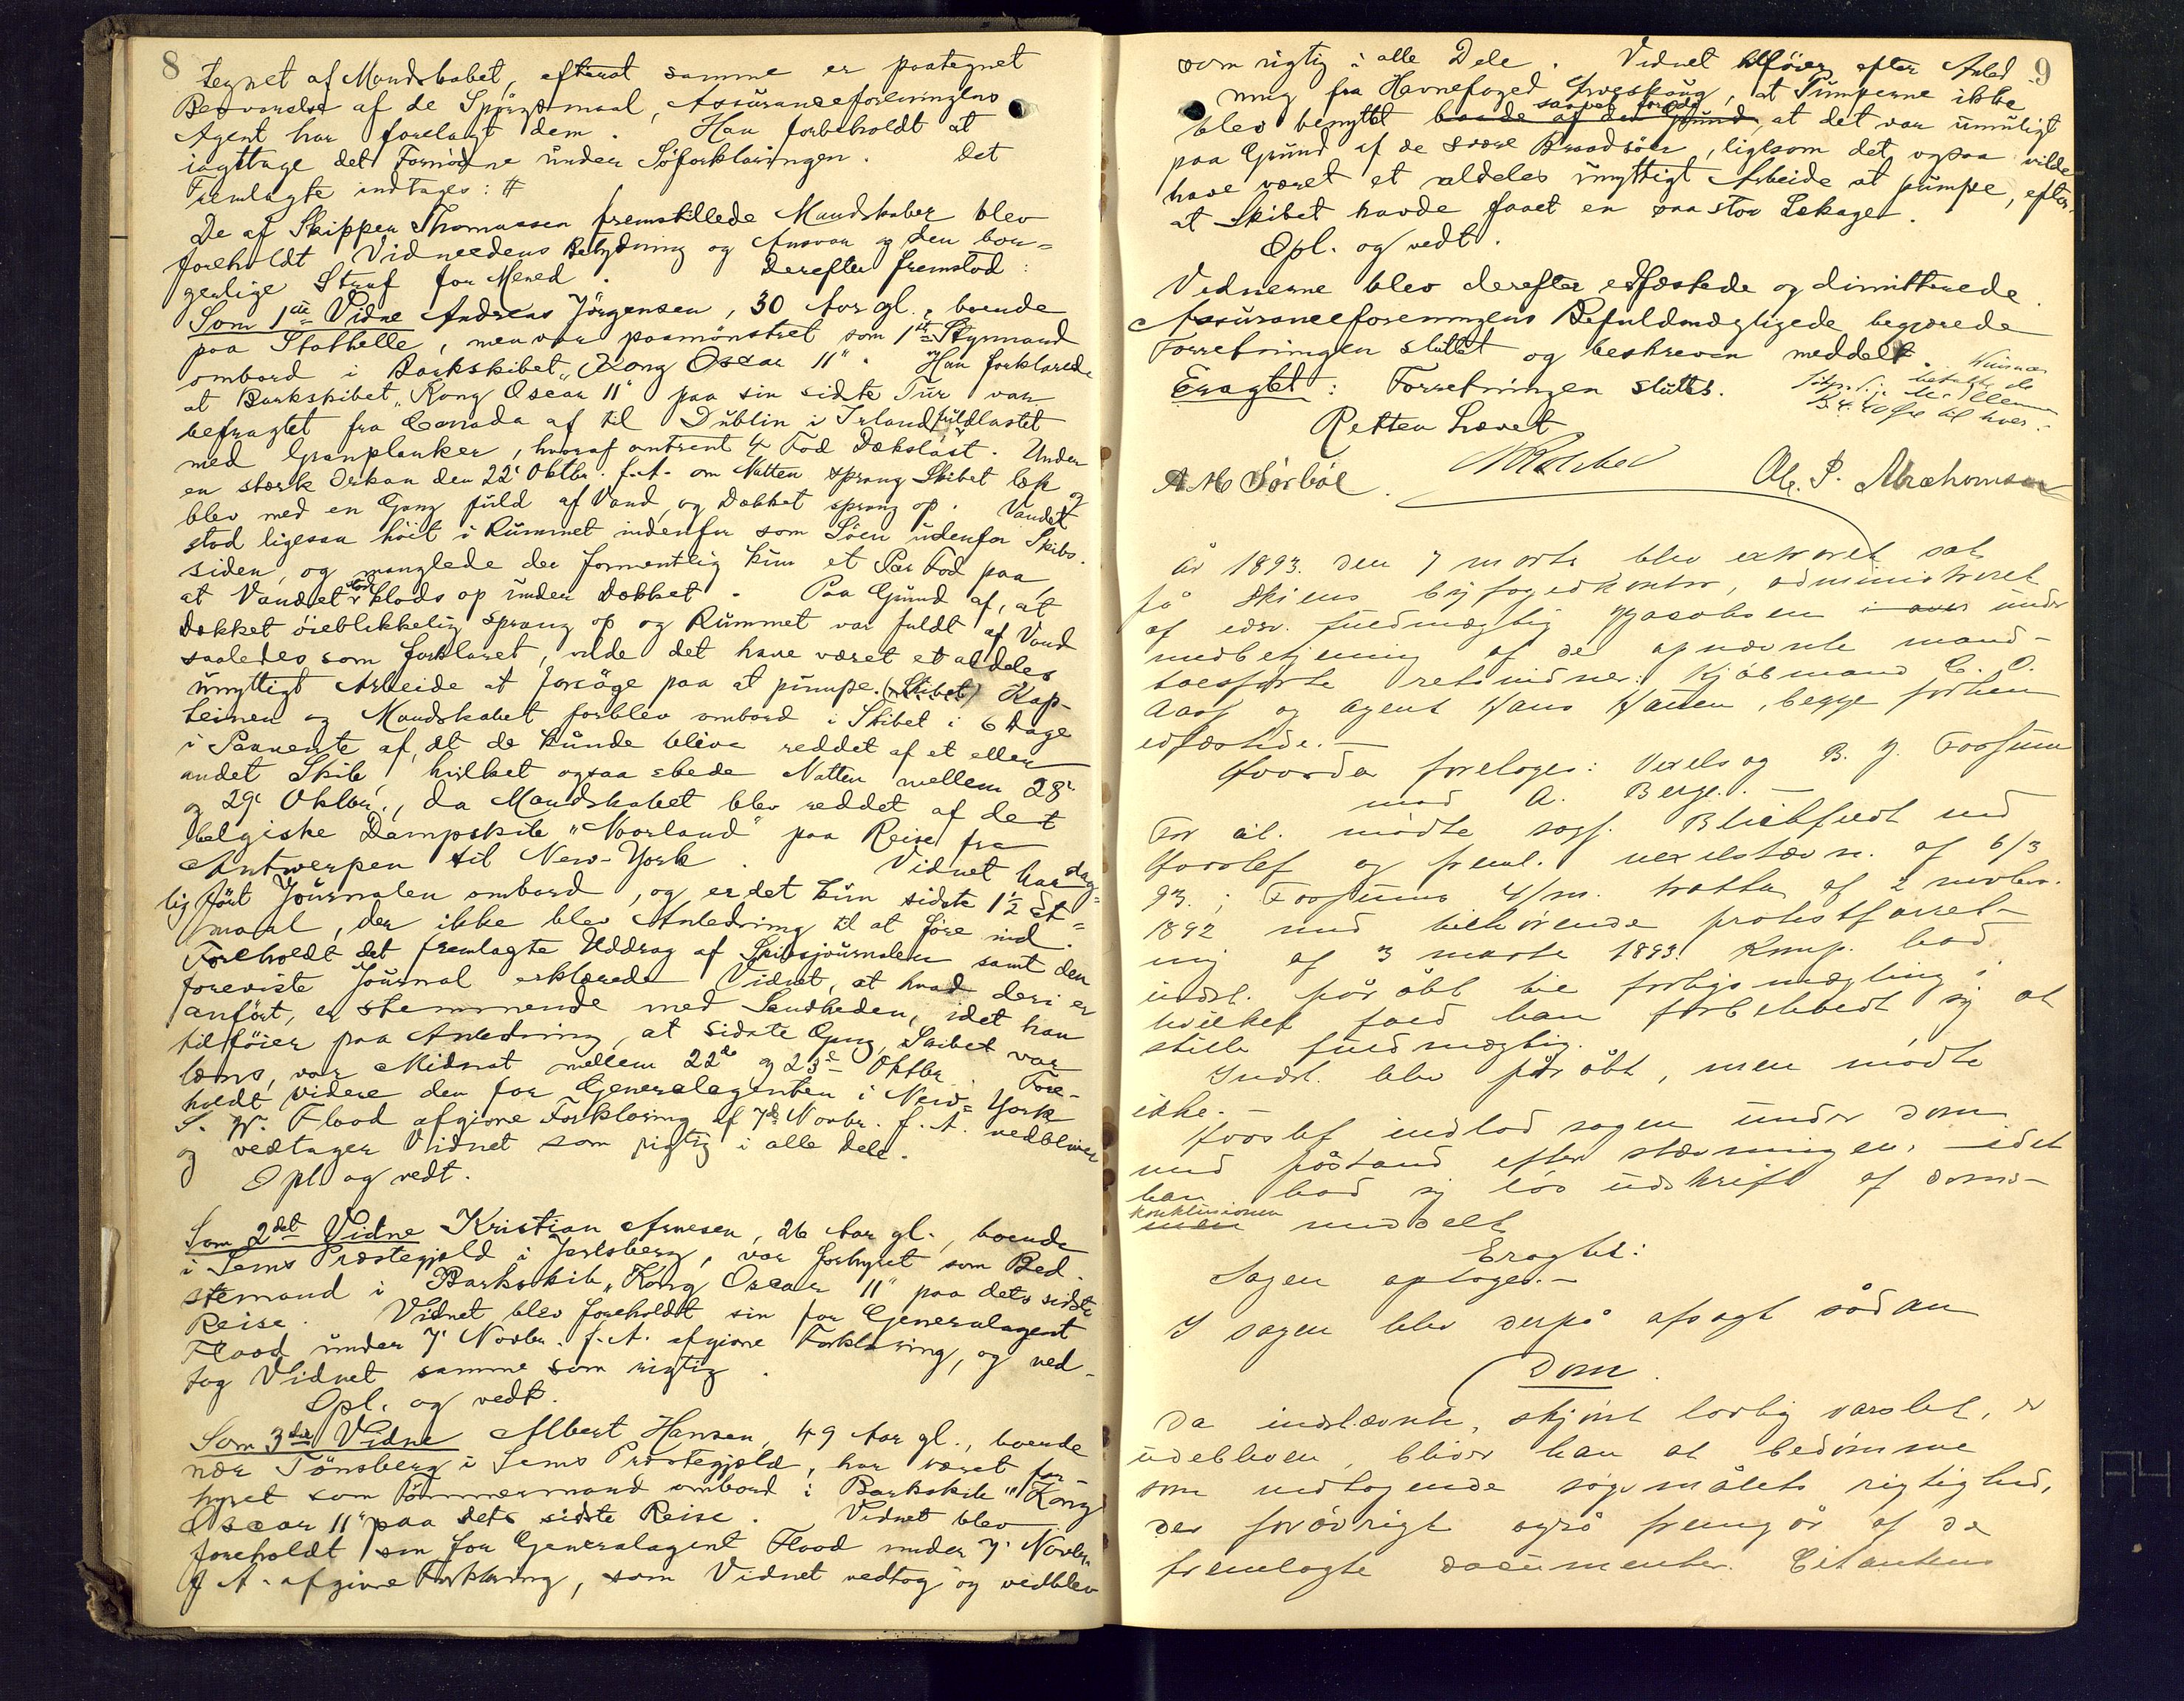 8
tegnet af Mandskabet, efterat samme er paategnet
Besvarelse af de Spörgsmaal, Assuranceforeningens
Agent har forelagt dem. Han forbeholdt at
iagttage det Fornödne under Söforklaringen. Det
Fremlagte indtages: #
De af Skipper Thomassen fremstillede Mandskaber blev
foreholdt Vidneedens Betydning og Ansvar og den bor-
gerlige Straf for Mened. Derefter fremstod:
Som 1ste Vidne Andreas Jörgensen, 30 Aar gl., boende
paa Stathelle, men var paamönstret som 1ste Styrmand
ombord i Barkskibet "Kong Oscar II". Han forklarede
at Barkskibet "Kong Oscar II" paa sin sidste Tur var
befragtet fra Canada af til Dublin i Irland fuldlastet
med Granplanker, hvoraf omtrent 4 Fod Dækslast. Under
en stærk Orkan den 22' Oktbr. f.A. om Natten sprang Skibet læk og
blev med en Gang fuld af Vand, og Dækket sprang op. Vandet
stod ligesaa höit i Rummet indenfor som Söen udenfor Skibs-
siden, og manglede der formentlig kun et Par Fod paa,
at Vandet stod klods op under Dækket. Paa Grund af, at
Dækket öieblikkelig sprang op og Rummet var fuldt af Vand
saaledes som forklaret, vilde det have været et aldeles
unyttigt Arbeide at forsöge paa at pumpe. (Skibet) Kap-
teinen og Mandskabet forblev ombord i Skibet i 6 Dage
i Paavente af, at de kunde blive reddet af et eller
andet Skib, hvilket ogsaa skede Natten mellem 28'
og 29' Oktbr., da Mandskabet blev reddet af det
belgiske Dampskib "Noorland" paa Reise fra
Antwerpen til New-York. Vidnet har dag-
lig fört Journalen ombord, og er det kun sidste 1½ Et-
maal, der ikke blev Anledning til at före ind.
Foreholdt det fremlagte Uddrag af Skibsjournalen samt den
foreviste Journal erklærede Vidnet, at hvad deri er
anfört, er stemmende med Sandheden, idet han
tilföier paa Anledning, at sidste Gang, Skibet var
læns, var Midnat mellem 22de og 23de Oktbr. Fore-
holdt videre den for Generalagenten i New-York
S. W. Flood afgivne Forklaring af 7de Novbr. f.A. vedbliver
og vedtager Vidnet som rigtig i alle Dele.
Opl. og vedt.
Som 2det Vidne Kristian Arnesen, 26 Aar gl., boende
i Sems Præstegjeld i Jarlsberg, var forhyret som Bed-
stemand i Barkskib "Kong Oscar II" paa dets sidste
Reise. Vidnet blev foreholdt sin for Generalagent
Flood under 7' Novbr. f.A. afgivne Forklaring, og ved-
tog Vidnet samme som rigtig.
Opl. og vedt.
Som 3die Vidne Albert Hansen, 49 Aar gl., boende
nær Tönsberg i Sems Præstegjeld, har været for-
hyret som Tömmermand ombord i Barkskib "Kong
Oscar II" paa dets sidste Reise. Vidnet blev
foreholdt sin for Generalagent Flood under 7' Novbr.
f.A. afgivne Forklaring, som Vidnet vedtog og vedblev
9
som rigtig i alle Dele. Vidnet tilföier efter Anled-
ning fra Havnefoged, at Pumperne ikke
blev benyttet baade af den Grund, at det var umuligt
paa Grund af de svære Braadsöer, ligesom det ogsaa vilde
have været et aldeles unyttigt Arbeide at pumpe, efter-
at Skibet havde faaet en saa stor Lækage.
Opl. og vedt.
Vidnerne blev derefter edfæstede og dimitterede.
Assuranceforeningens Befuldmægtigede begjærede
Forretningen sluttet og beskreven meddelt.
Eragtet: Forretningen sluttes.
Retten hævet
A M Sörböl. Ole P. Abrahamsen
År 1893 den 7 marts blev extraret sat
på Skiens byfogedkontor, administreret
af edsv. fuldmægtig Jacobsen i over under
medbetjening af de opnævnte mand-
talsförte retsvidner: Kjöbmand C. O.
Aas og agent Hans Hansen, begge forhen
edfæstede.—
Hvorda foretoges: Vexelsag B. J. Fossum
mod A. Berge.—
For cit. mödte sagf. Blichfeldt ved
Horslef og freml. vexelstævn. af 6/3
93; Fossums 4/m. tratta af 2 novbr.
1892 med tilhörende protestforret-
ning af 3 marts 1893. Komp. bad
indst. påråbt til forligsmægling i
hvilket fald han forbeholdt sig at
stille fuldmægtig.
Indst. blev påråbt, men mödte
ikke.—
Horslef indlod sagen under dom
med påstand efter stævningen, idet
han bad sig lös udskrift af doms-
konklusionen meddelt
Eragtet:
Sagen optages.—
I sagen blev derpå afsagt sådan
Dom.
Da indstævnte, skjönt lovlig varslet, er
udebleven, bliver han at bedömme
som vedtagende sögsmålets rigtighed,
der forövrigt også fremgår af de
fremlagte documenter. Citantens